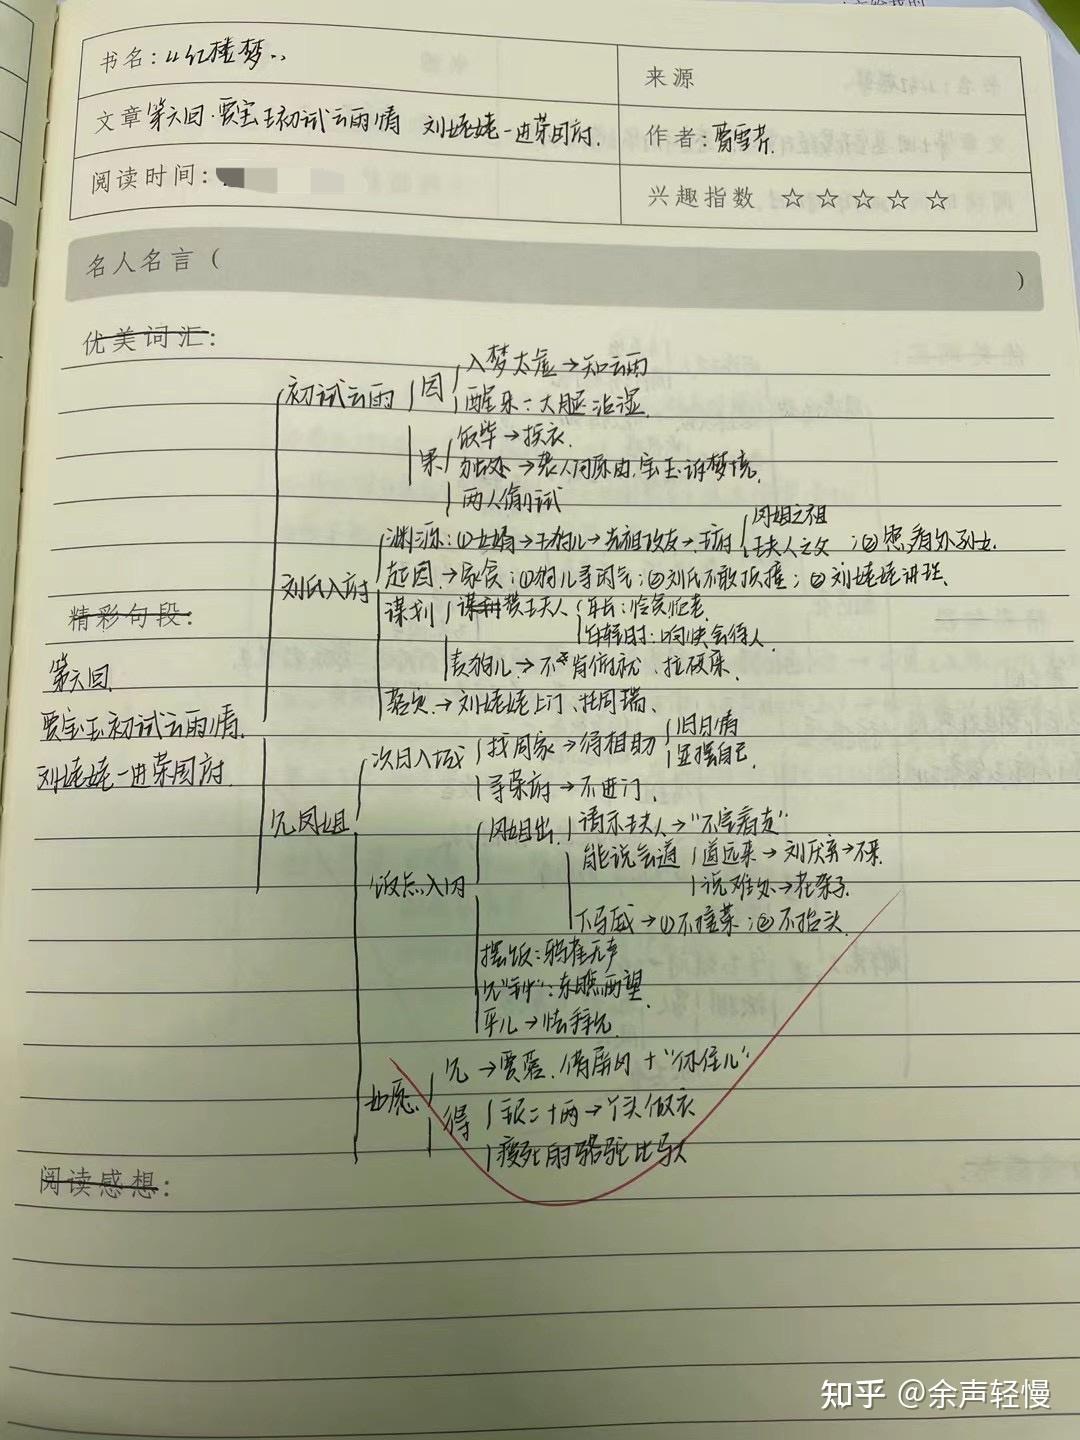 书名：《红楼梦》
来源
文章 第六回·贾宝玉初试云雨情 刘姥姥一进荣国府.
作者：曹雪芹.
阅读时间：
兴趣指数 ☆ ☆ ☆ ☆ ☆
名人名言（ ）
优美词汇：
入梦太虚→知云雨
初试云雨 因
醒来：大腿沾湿.
饭毕→换衣.
果 →袭人问原由,宝玉诉梦境.
两人偷试
凤姐之祖
渊源：①女婿→王狗儿→先祖故友→王府 王夫人之父 ；② 看外孙女.
刘氏入府 起因→家贫；①狗儿寻闲气；②刘氏不敢顶撞；③刘姥姥讲理.
精彩句段：
谋划 王夫人 年长：怜贫恤老
年轻时：响快会待人
责狗儿→不肯俯就、拉硬屎.
第六回
→刘姥姥上门、找周瑞.
贾宝玉初试云雨情.
旧日情
次日入城 找周家→得相助
显摆自己.
刘姥姥一进荣国府.
寻荣府→不进门.
见凤姐
凤姐出 请示王夫人→“不宝看走”
能说会道 道远来→刘厌弃→不来.
饭点入内
说难处→
下马威→①不 ；②不抬头.
摆饭：鸦雀无声
见“钟”：东瞧西望.
平儿→
见→贾蓉.借屏风+“你住儿”
得 银二十两→丫头做衣
瘦死的骆驼比马大
阅读感想：
知乎 @余声轻慢